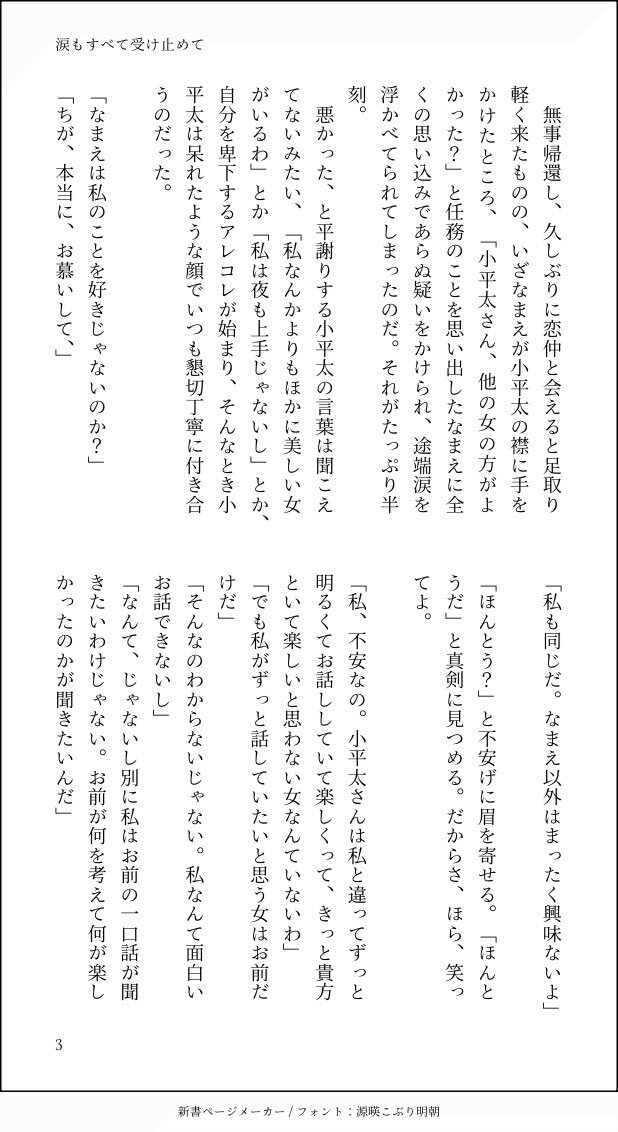 涙もすべて受け止めて
　無事帰還し、久しぶりに恋仲と会えると足取り
軽く来たものの、いざなまえが小平太の襟に手を
かけたところ、「小平太さん、他の女の方がよ
かった？」と任務のことを思い出したなまえに全
くの思い込みであらぬ疑いをかけられ、途端涙を
浮かべてられてしまったのだ。それがたっぷり半
刻。
　悪かった、と平謝りする小平太の言葉は聞こえ
てないみたい、「私なんかよりもほかに美しい女
がいるわ」とか「私は夜も上手じゃないし」とか、
自分を卑下するアレコレが始まり、そんなとき小
平太は呆れたような顔でいつも懇切丁寧に付き合
うのだった。
「なまえは私のことを好きじゃないのか？」
「ちが、本当に、お慕いして、」
「私も同じだ。なまえ以外はまったく興味ないよ」
「ほんとう？」と不安げに眉を寄せる。「ほんと
うだ」と真剣に見つめる。だからさ、ほら、笑っ
てよ。
「私、不安なの。小平太さんは私と違ってずっと
明るくてお話ししていて楽しくって、きっと貴方
といて楽しいと思わない女なんていないわ」
「でも私がずっと話していたいと思う女はお前だ
けだ」
「そんなのわからないじゃない。私なんて面白い
お話できないし」
「なんて、じゃないし別に私はお前の一口話が聞
きたいわけじゃない。お前が何を考えて何が楽し
かったのかが聞きたいんだ」
3
新書ページメーカー / フォント：源暎こぶり明朝